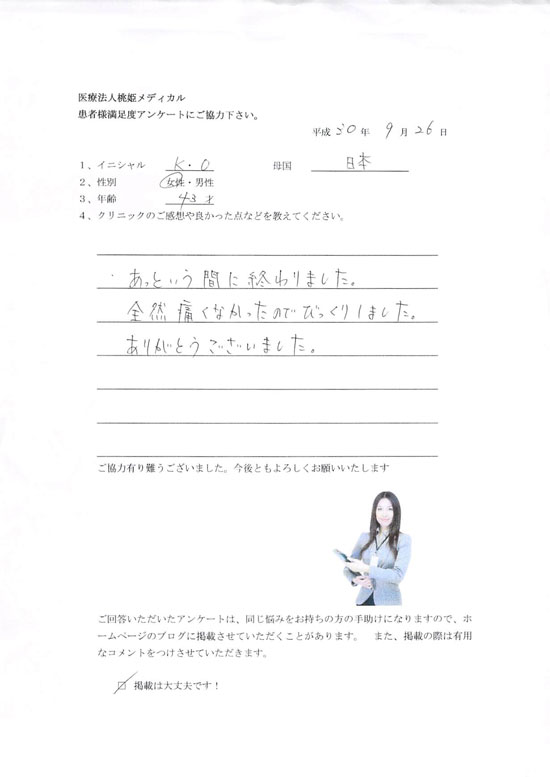 医療法人桃姫メディカル
患者様満足度アンケートにご協力下さい。
平成 30 年 9 月 26 日
1、イニシャル K・O 母国 日本
2、性別 女性・男性
3、年齢 43 才
4、クリニックのご感想や良かった点などを教えてください。
・あっという間に終わりました。
全然痛くなかったのでびっくりしました。
ありがとうございました。
ご協力有り難うございました。今後ともよろしくお願いいたします
ご回答いただいたアンケートは、同じ悩みをお持ちの方の手助けになりますので、ホ
ームページのブログに掲載させていただくことがあります。 また、掲載の際は有用
なコメントをつけさせていただきます。
☑ 掲載は大丈夫です！